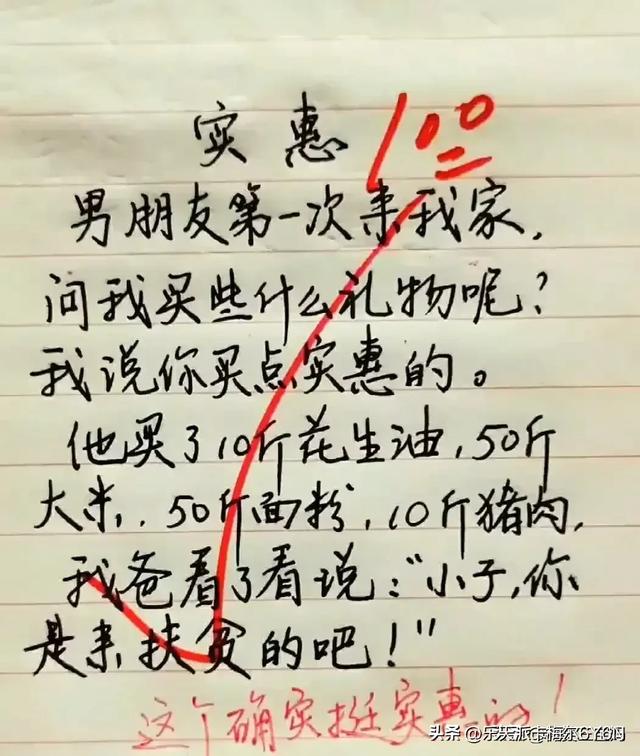 实惠 100
男朋友第一次来我家,
问我买些什么礼物呢?
我说你买点实惠的。
他买了10斤花生油,50斤
大米,50斤面粉,10斤猪肉,
我爸看了看说:"小子,你
是来扶贫的吧!"
这个确实挺实惠的!
头条 @乐天派卡梅尔